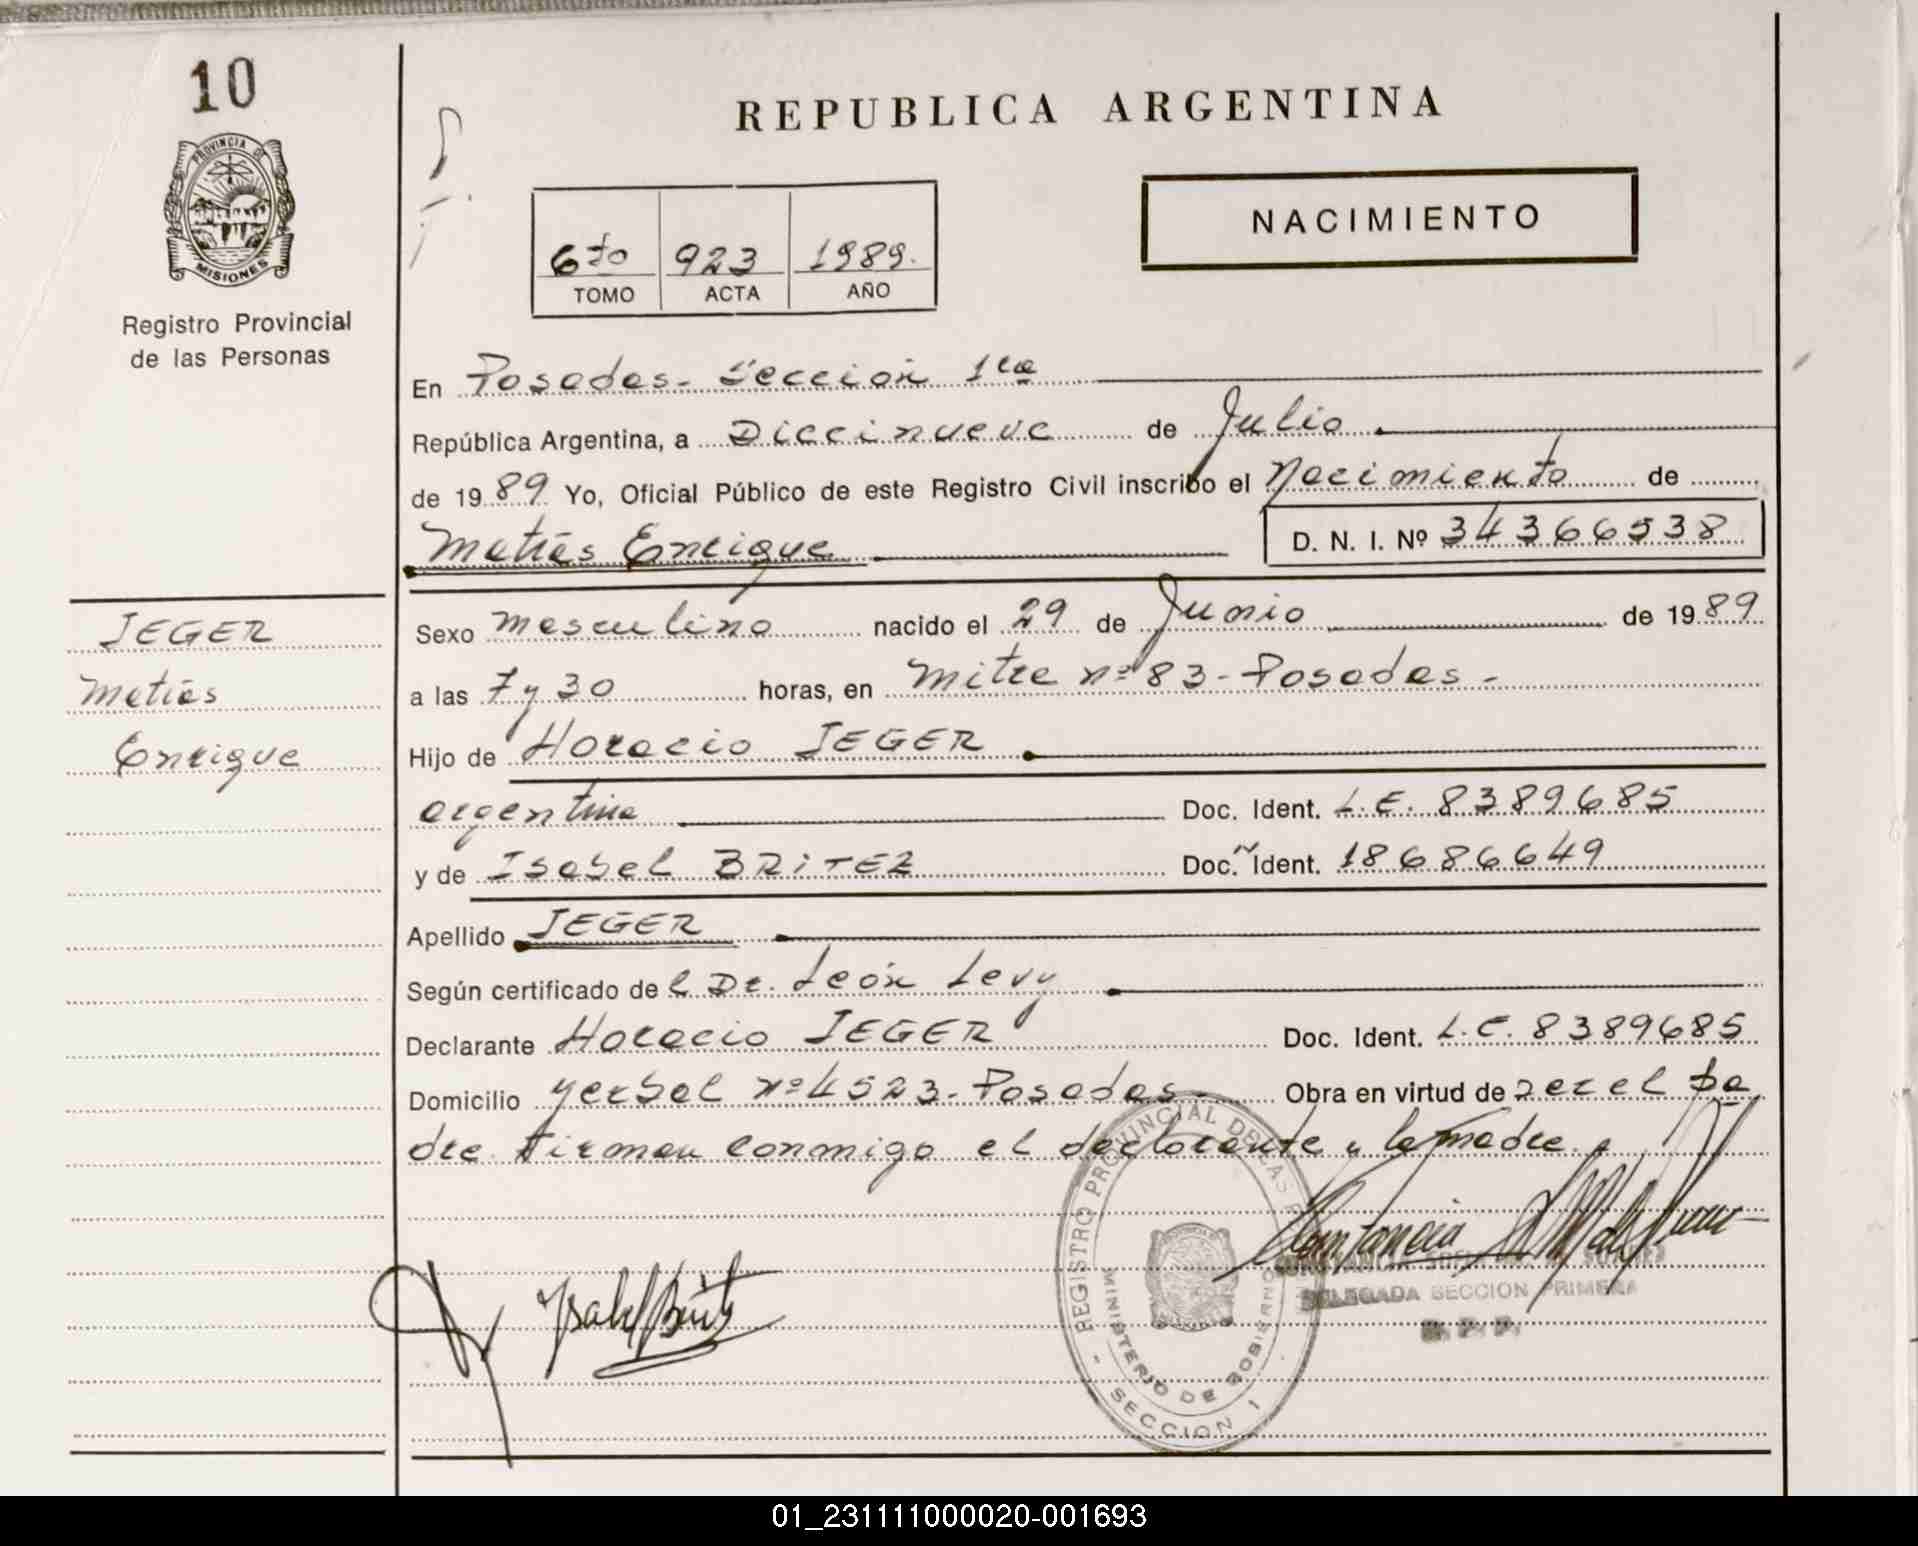 10
PROVINCIA DE
MISIONES
Registro Provincial
de las Personas
REPUBLICA ARGENTINA
NACIMIENTO
6to 923 1989.
TOMO ACTA AÑO
En Posadas - Sección 1ra
República Argentina, a Diecinueve de Julio
de 1989 Yo, Oficial Público de este Registro Civil inscribo el Nacimiento de
Matías Enrique D. N. I. Nº 34366538
JEGER
Matías
Enrique
Sexo Masculino nacido el 29 de Junio de 1989
a las 7 y 30 horas, en Mitre nº 83 - Posadas -
Hijo de Horacio JEGER
argentina Doc. Ident. L.E. 8389685
y de Isabel BRITEZ Doc. Ident. 18686649
Apellido JEGER
Según certificado del Dr. León Levy
Declarante Horacio JEGER Doc. Ident. L.E. 8389685
Domicilio Yerbal nº 4523 - Posadas - Obra en virtud de ser el pa
dre. Firman conmigo el declarante y la madre.
REGISTRO PROVINCIAL DE LAS
MINISTERIO DE GOBIERNO
- SECCION 1 -
Isabel Britz
Constancia
DELEGADA SECCION PRIMERA
R. P. P.
01_231111000020-001693